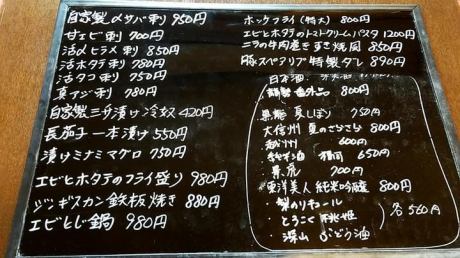 自家製〆サバ刺 950円
甘エビ刺 700円
活〆ヒラメ刺 850円
活ホタテ刺 780円
活タコ刺 750円
真アジ刺 780円
自家製三升漬け冷奴 420円
長茄子一本漬け 550円
漬けミナミマグロ 750円
エビとホタテのフライ盛り 980円
ジンギスカン鉄板焼き 880円
エビとじ鍋 980円
ホッケフライ(特大) 800円
エビとホタテのトマトクリームパスタ 1200円
ニラの牛肉巻きすき焼風 850円
豚スペアリブ特製ダレ 890円
日本酒
番外品 800円
夏しぼり 750円
大信州 夏のさらさら 800円
600円
650円
700円
東洋美人 純米吟醸 800円
梨のリキュール
とろこく桃姫
深山ぶどう酒
各560円